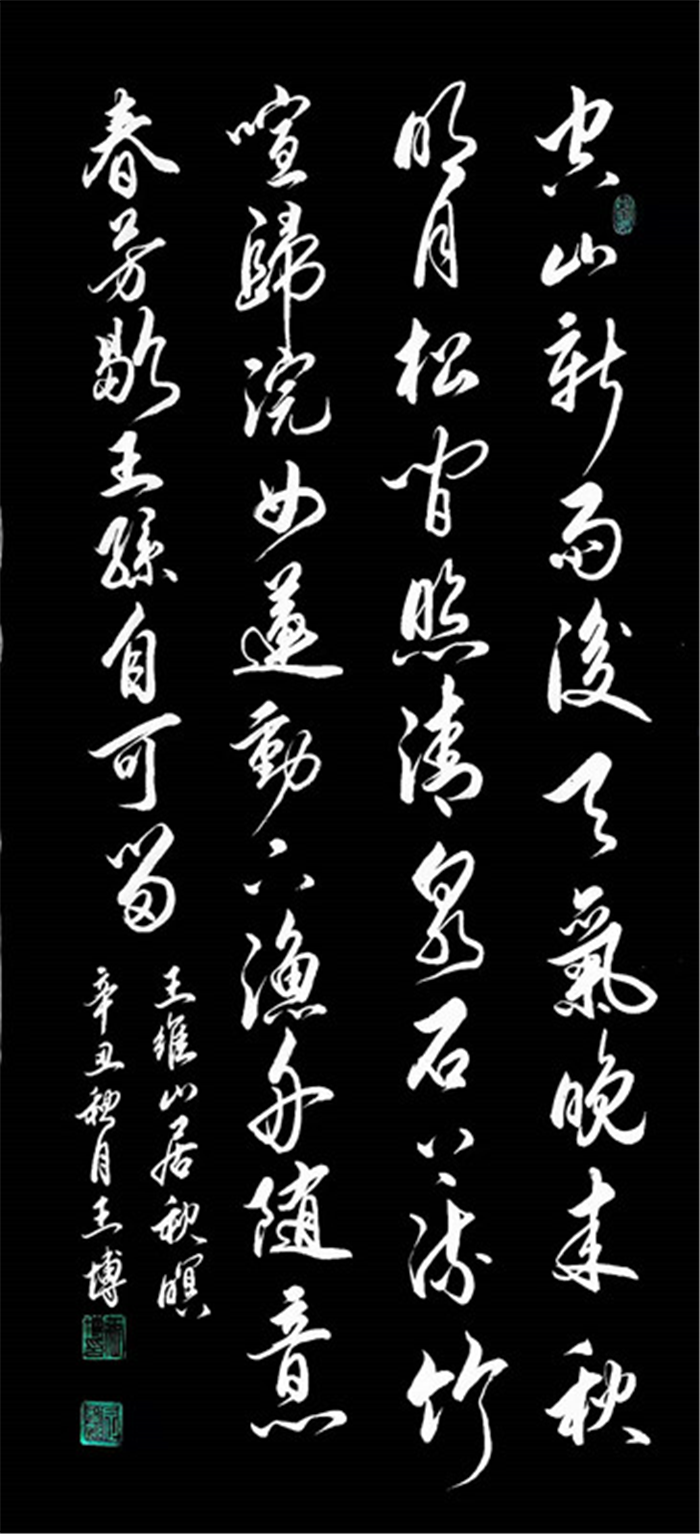 空山新雨後天氣晚来秋
明月松間照清泉石上流竹
喧歸浣女蓮動下漁舟随意
春芳歇王孫自可留
王維山居秋暝
辛丑秋月王博